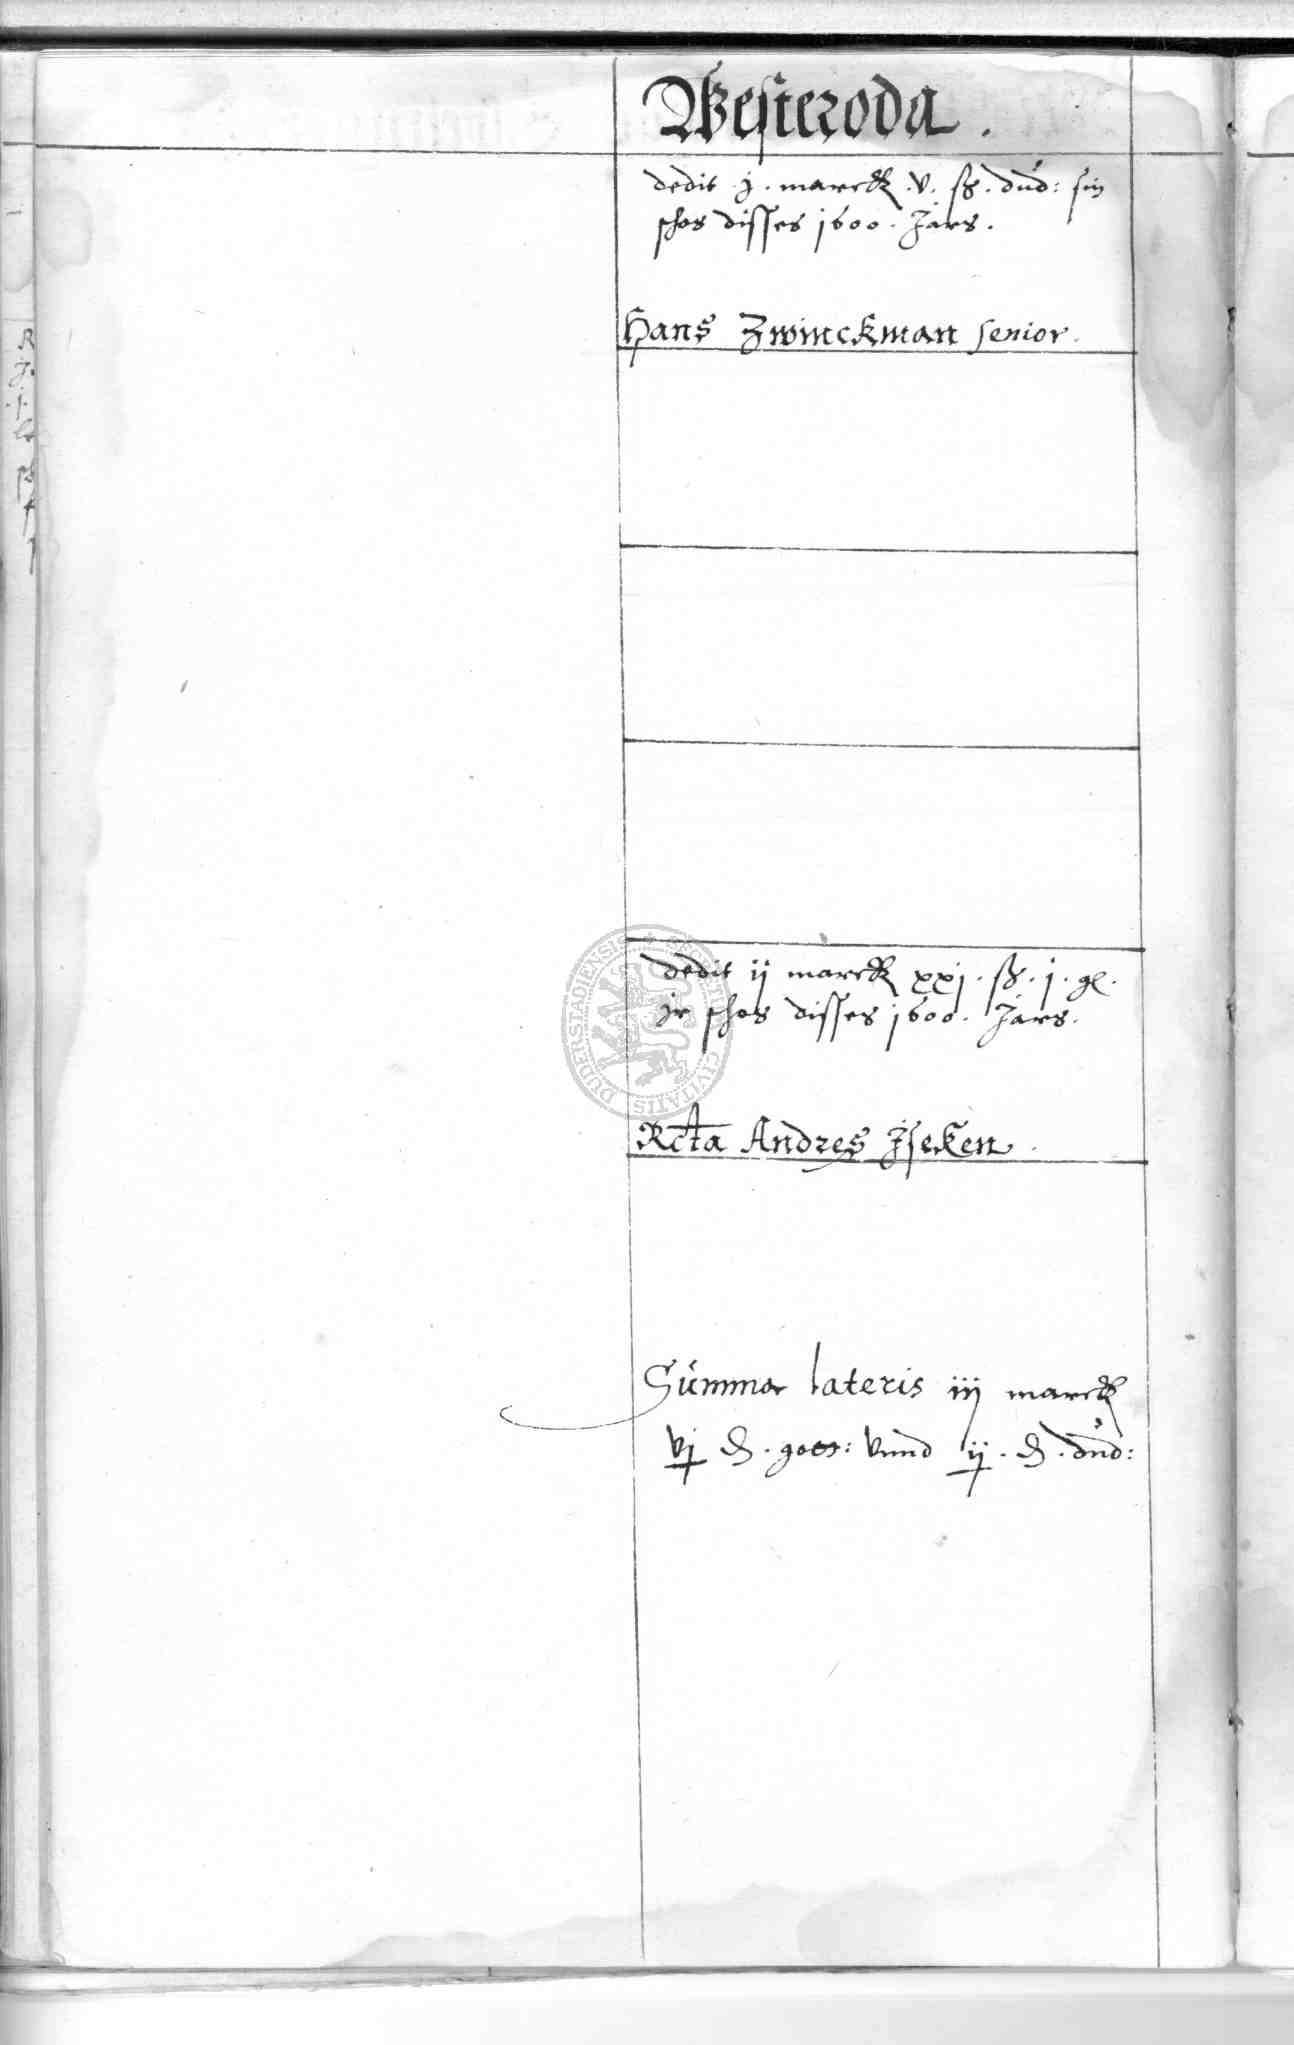 Westeroda.
dedit j. marck. v. ß. dud: sin
schos disses 1600. Jars.
Hans Zwinckman senior.
dedit ij marck xxj. ß. j. gl.
jr schos disses 1600. Jars.
Rcta Andres Jseken.
Summa lateris iij marck
vj ₰. gott: vnnd ij. ₰. dud:
SECRETUM CIVITATIS DUDERSTADIENSIS